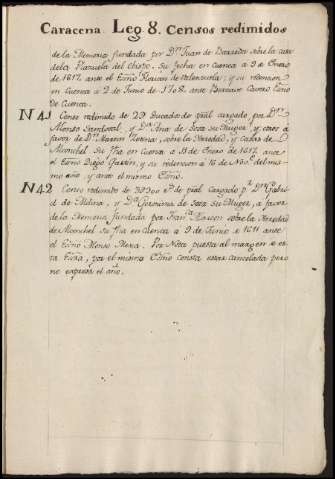 Caracena Leg 8. Censos redimidos
de la Memoria fundada por Dn Juan de sobre la casa
de la Plazuela del Obispo. Su fecha en Cuenca a 9 de Enero
de 1617. ante el Essno de Valenzuela: y su redencion
en Cuenca a 2 de Junio de ante Essno
de Cuenca.
N 41 Censo redimido de 2D Ducados de pral cargado por Dn
Alonso Sandoval, y Da Ana de Sosa su Muger, y otros a
favor de Dn Martin sobre la Heredad, y Casas de
Monchel su fha en Cuenca a de Enero de 1617. ante
el Essno Diego y su redencion a 18 de Nove del mis-
mo año y ante el mismo Essno.
N 42 Censo redimido de rs de pral cargado pr Dn Gabriel
de Molina, y Da Geronima de Sosa su Muger, a favor
de la Memoria fundada por sobre la Heredad
de Monchel su fha en Cuenca a 9 de Junio de 1611 ante
el Essno Alonso Mexa. Por Nota puesta al margen de es-
ta Essra, por el mismo Essno consta estar cancelada pero
no expresa el año.